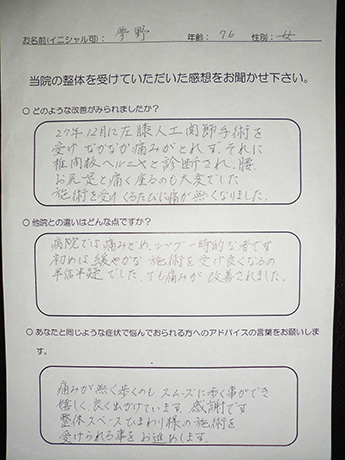 お名前(イニシャル可): 夢野 年齢: 76 性別: 女
当院の整体を受けていただいた感想をお聞かせ下さい。
○ どのような改善がみられましたか？
27年12月に左膝人工関節手術を
受け なかなか痛みがとれず、それに
椎間板ヘルニヤと診断され、腰、
お尻、足と痛く座るのも大変でした
施術を受けくるたびに痛が無くなりました。
○ 他院との違いはどんな点ですか？
病院では痛みどめ、シップ一時的な者です
初めは緩やかな施術を受け良くなるの
半信半疑でした。でも痛みが改善されました。
○ あなたと同じような症状で悩んでおられる方へのアドバイスの言葉をお願いしま
す。
痛みが無く歩くのもスムーズに歩く事ができ
嬉しく、良く出かけています、感謝です
整体スペースひまわり様の施術を
受けられる事をお進めします。